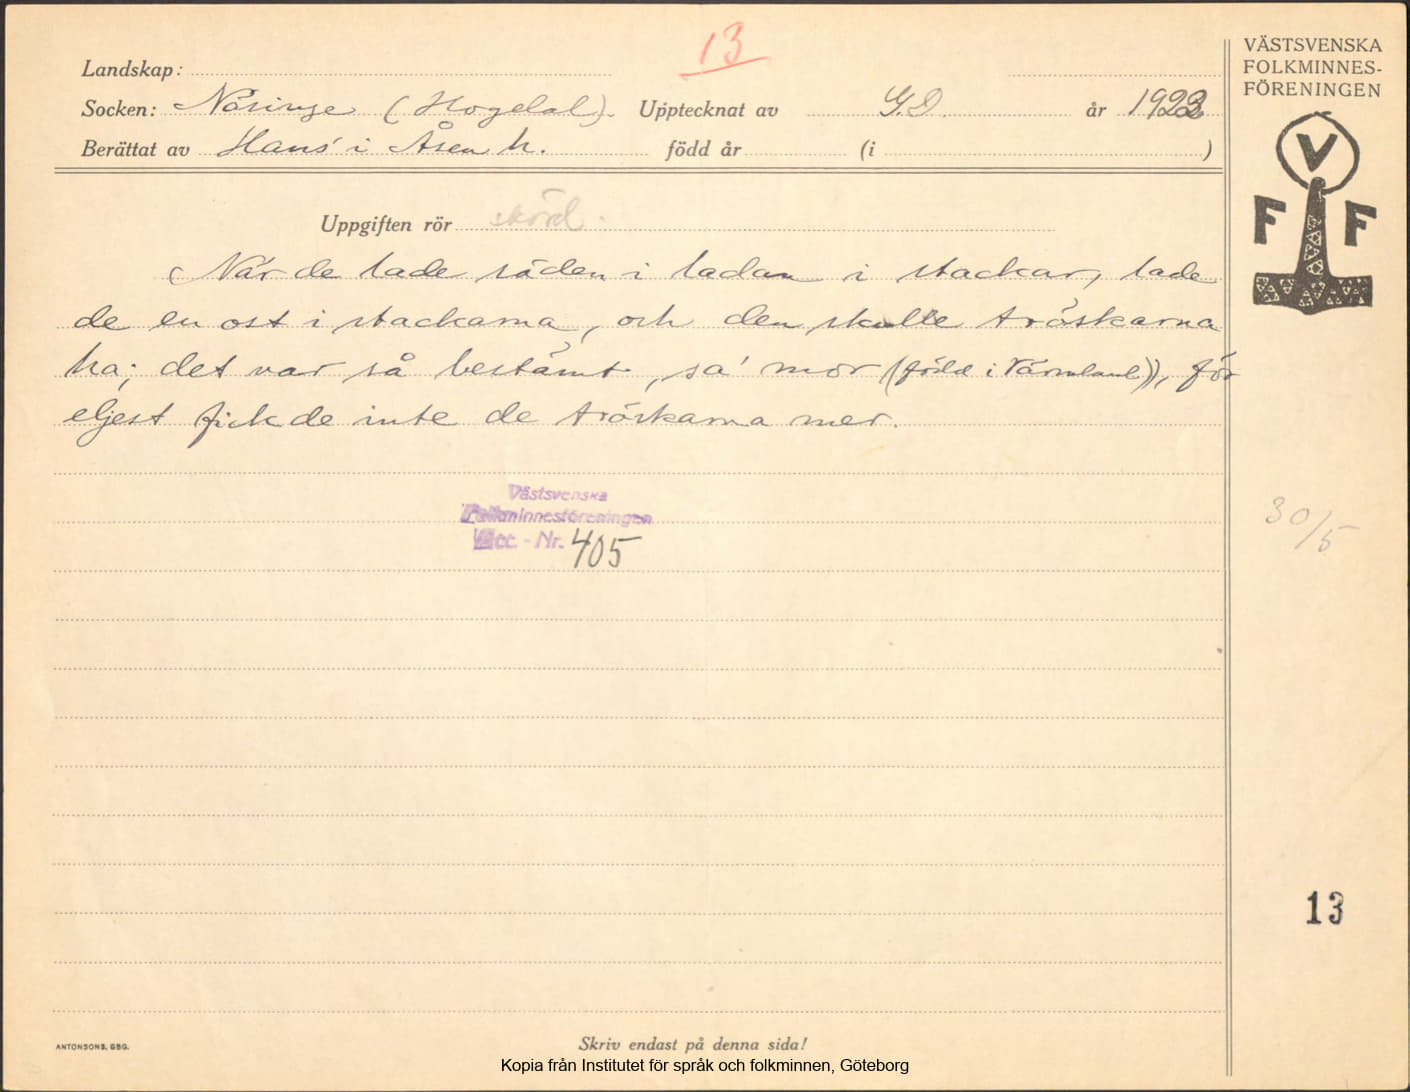 13
VÄSTSVENSKA
FOLKMINNES-
FÖRENINGEN
Landskap:
Socken: Näsinge (Hogdal). Upptecknat av G.D. år 1923
Berättat av Hans' i Åsen h. född år (i )
V
F F
Uppgiften rör skörd.
När de lade säden i ladan i stackar, lade
de en ost i stackarna, och den skulle tröskarna
ha; det var så bestämt, sa' mor (född i Värmland)), för
eljest fick de inte de tröskarna mer.
Västsvenska
Folkminnesföreningen
Acc. - Nr. 405
30/5
13
ANTONSONS, GBG.
Skriv endast på denna sida!
Kopia från Institutet för språk och folkminnen, Göteborg